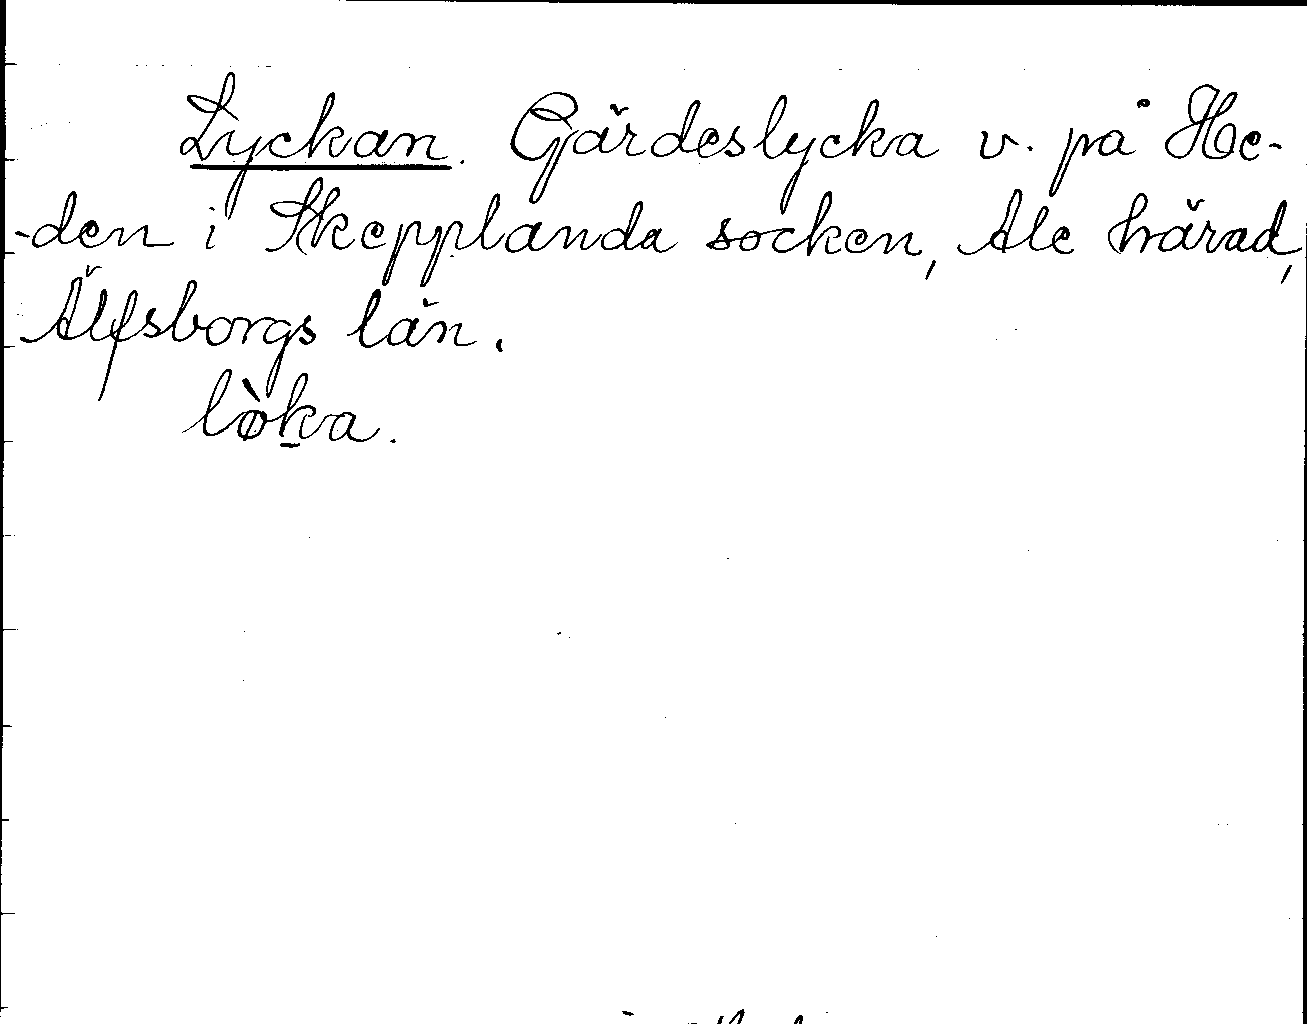 Lyckan. Gärdeslycka v. på He-
-den i Skepplanda socken, Ale härad,
Älfsborgs län.
lø̀ḵa.